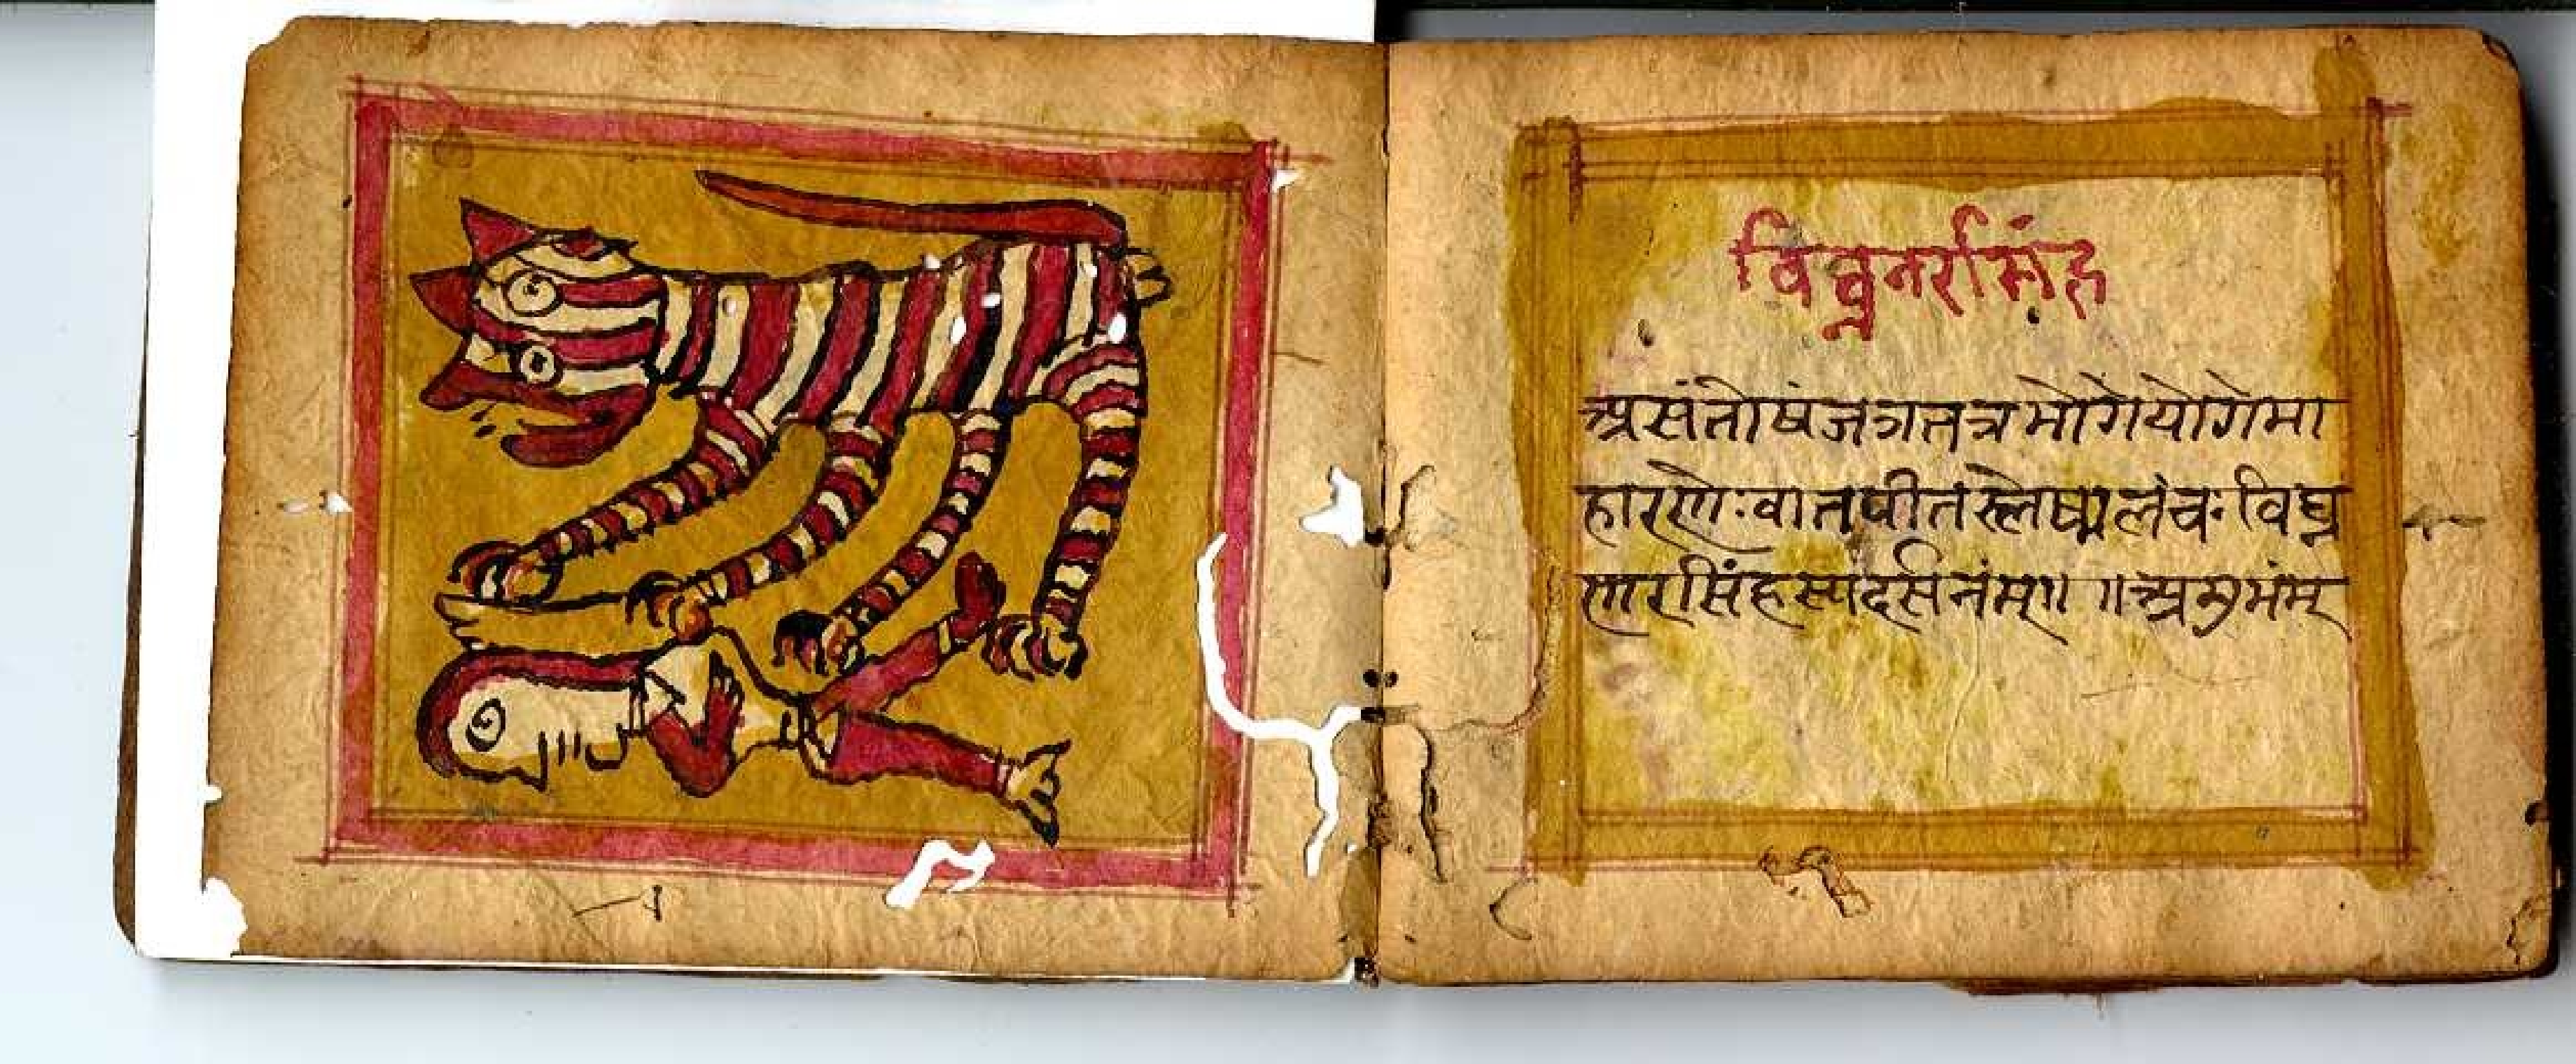 विघ्ननरसिंह
असंतोषंजत्रतत्रभोगेयोगेमा
हारणेःवातपीतस्लेष्मलंचःविघ्न
णारसिंहस्यंदर्सनंम्॥ ॥अशुभंम्